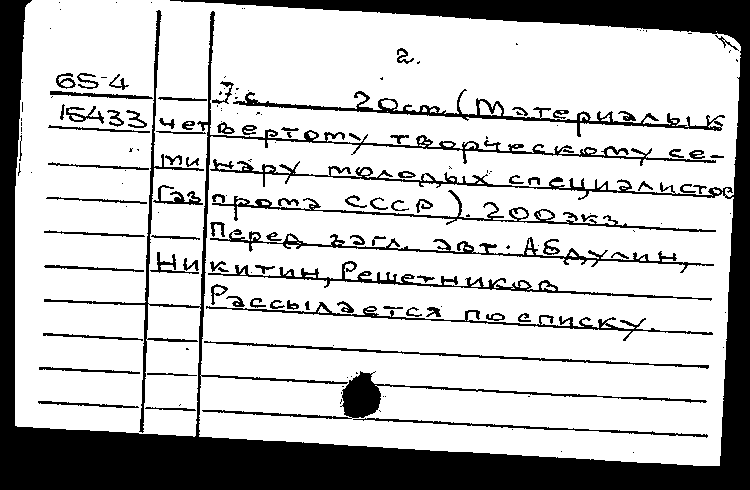 2.
65-4
7 с. 20см. (Материалы к
15433 четвертому творческому се-
минару молодых специалистов
Газпрома СССР). 200 экз.
Перед загл. авт.: Абдулин,
Никитин, Решетников
Рассылается по списку.